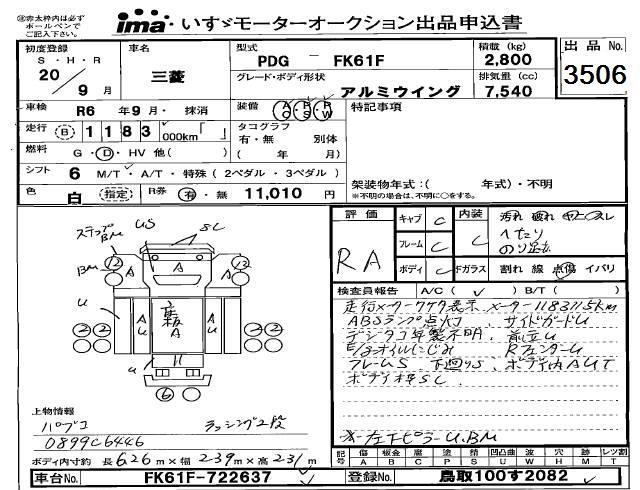 ※赤太枠内は必ず
ボールペンで
ご記入下さい。
ima いすゞモーターオークション出品申込書
初度登録 S・H・R 20/9月
車名 三菱
型式 PDG － FK61F
積載(kg) 2,800
出品No. 3506
グレード・ボディ形状 アルミウイング
排気量(cc) 7,540
車検 R6 年9月・ 抹消
装備 AC PS PW
特記事項
走行 B 1183 000km「 」
タコグラフ 有・無 別体 ( 年 月)
燃料 G・D・HV 他( )
シフト 6 M/T・A/T・特殊(2ペダル・3ペダル)
色 白 指定 R券 有・無 11,010 円
架装物年式:( 年式)・不明
※不明の場合は、不明に○をする。
評価 RA
キャブ C 内装 C 汚れ 破れ
へたり
フレーム C
ボディ C Fガラス 割れ 線 点傷 イバリ
検査員報告 A/C( ✓ ) B/T( )
走行メーター 表示 メーター1183115km
ABSランプ点灯 サイドガードU
デジタコ年製不明 前立U
E/gオイルにじみ RフェンダーU
フレームS 下廻りS ボディ内AUT
ボディ枠SC
※左下ピラーU.BM
ステップBM
US
SC
12 A A A 12
BM
U
A U A U
2 2 2 2
U
H
6
上物情報
パブコ ラッシング2段
0899C6446
ボディ内寸約 長626m×幅239m×高231m
記号 傷 A 板金 B 腐 C 塗 P 錆 S 凹凸曲 U 波 W 加修 H 跡 M レツ割 T
車台No. FK61F-722637
登録No. 鳥取100す2082